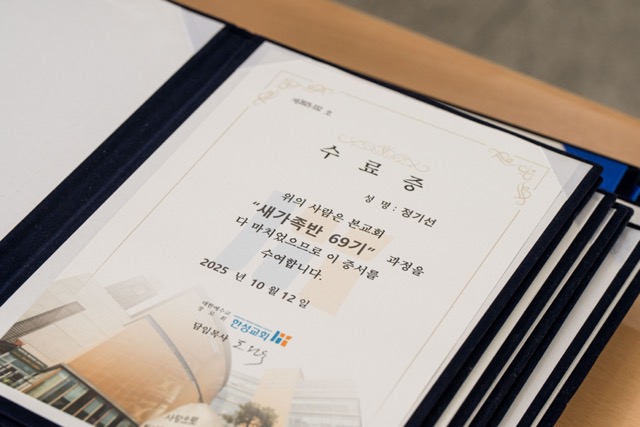 수 료 증
성 명 : 정기선
위의 사람은 본교회
"새가족반 69기" 과정을
다 마치었으므로 이 증서를
수여합니다.
2025 년 10 월 12 일
대한예수교
장로회 한성교회
담임목사
사랑으로